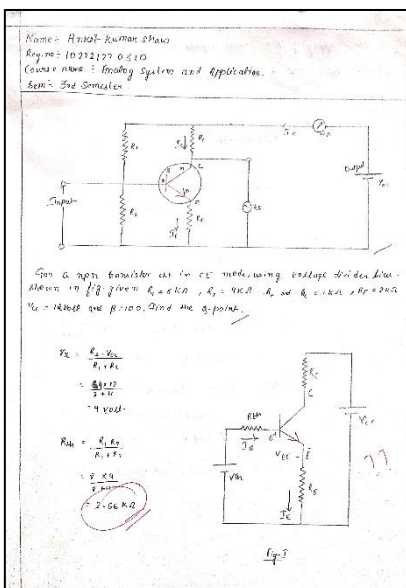 Name:- Ankit Kumar Shaw
Course name:- Analog System and Application.
Sem:- 3rd Semester
R1
Rc
Ic
Input
R2
RE
IE
Output
Vcc
For a npn transistor as in CE mode, using voltage divider bias
shown in fig. given R1 = 8 KΩ, R2 = 4KΩ Rc = 1KΩ, RE = 2KΩ
Vcc = 12 Volt and β = 100. Find the Q-point.
= R2 · Vcc
R1 + R2
= 4 volt
Rth = R1 R2
R1 + R2
= 8 × 4
= 2.66 KΩ
Rc
C
Rth
IB
B
VBE
E
Vth
RE
IE
Vcc
Fig-I